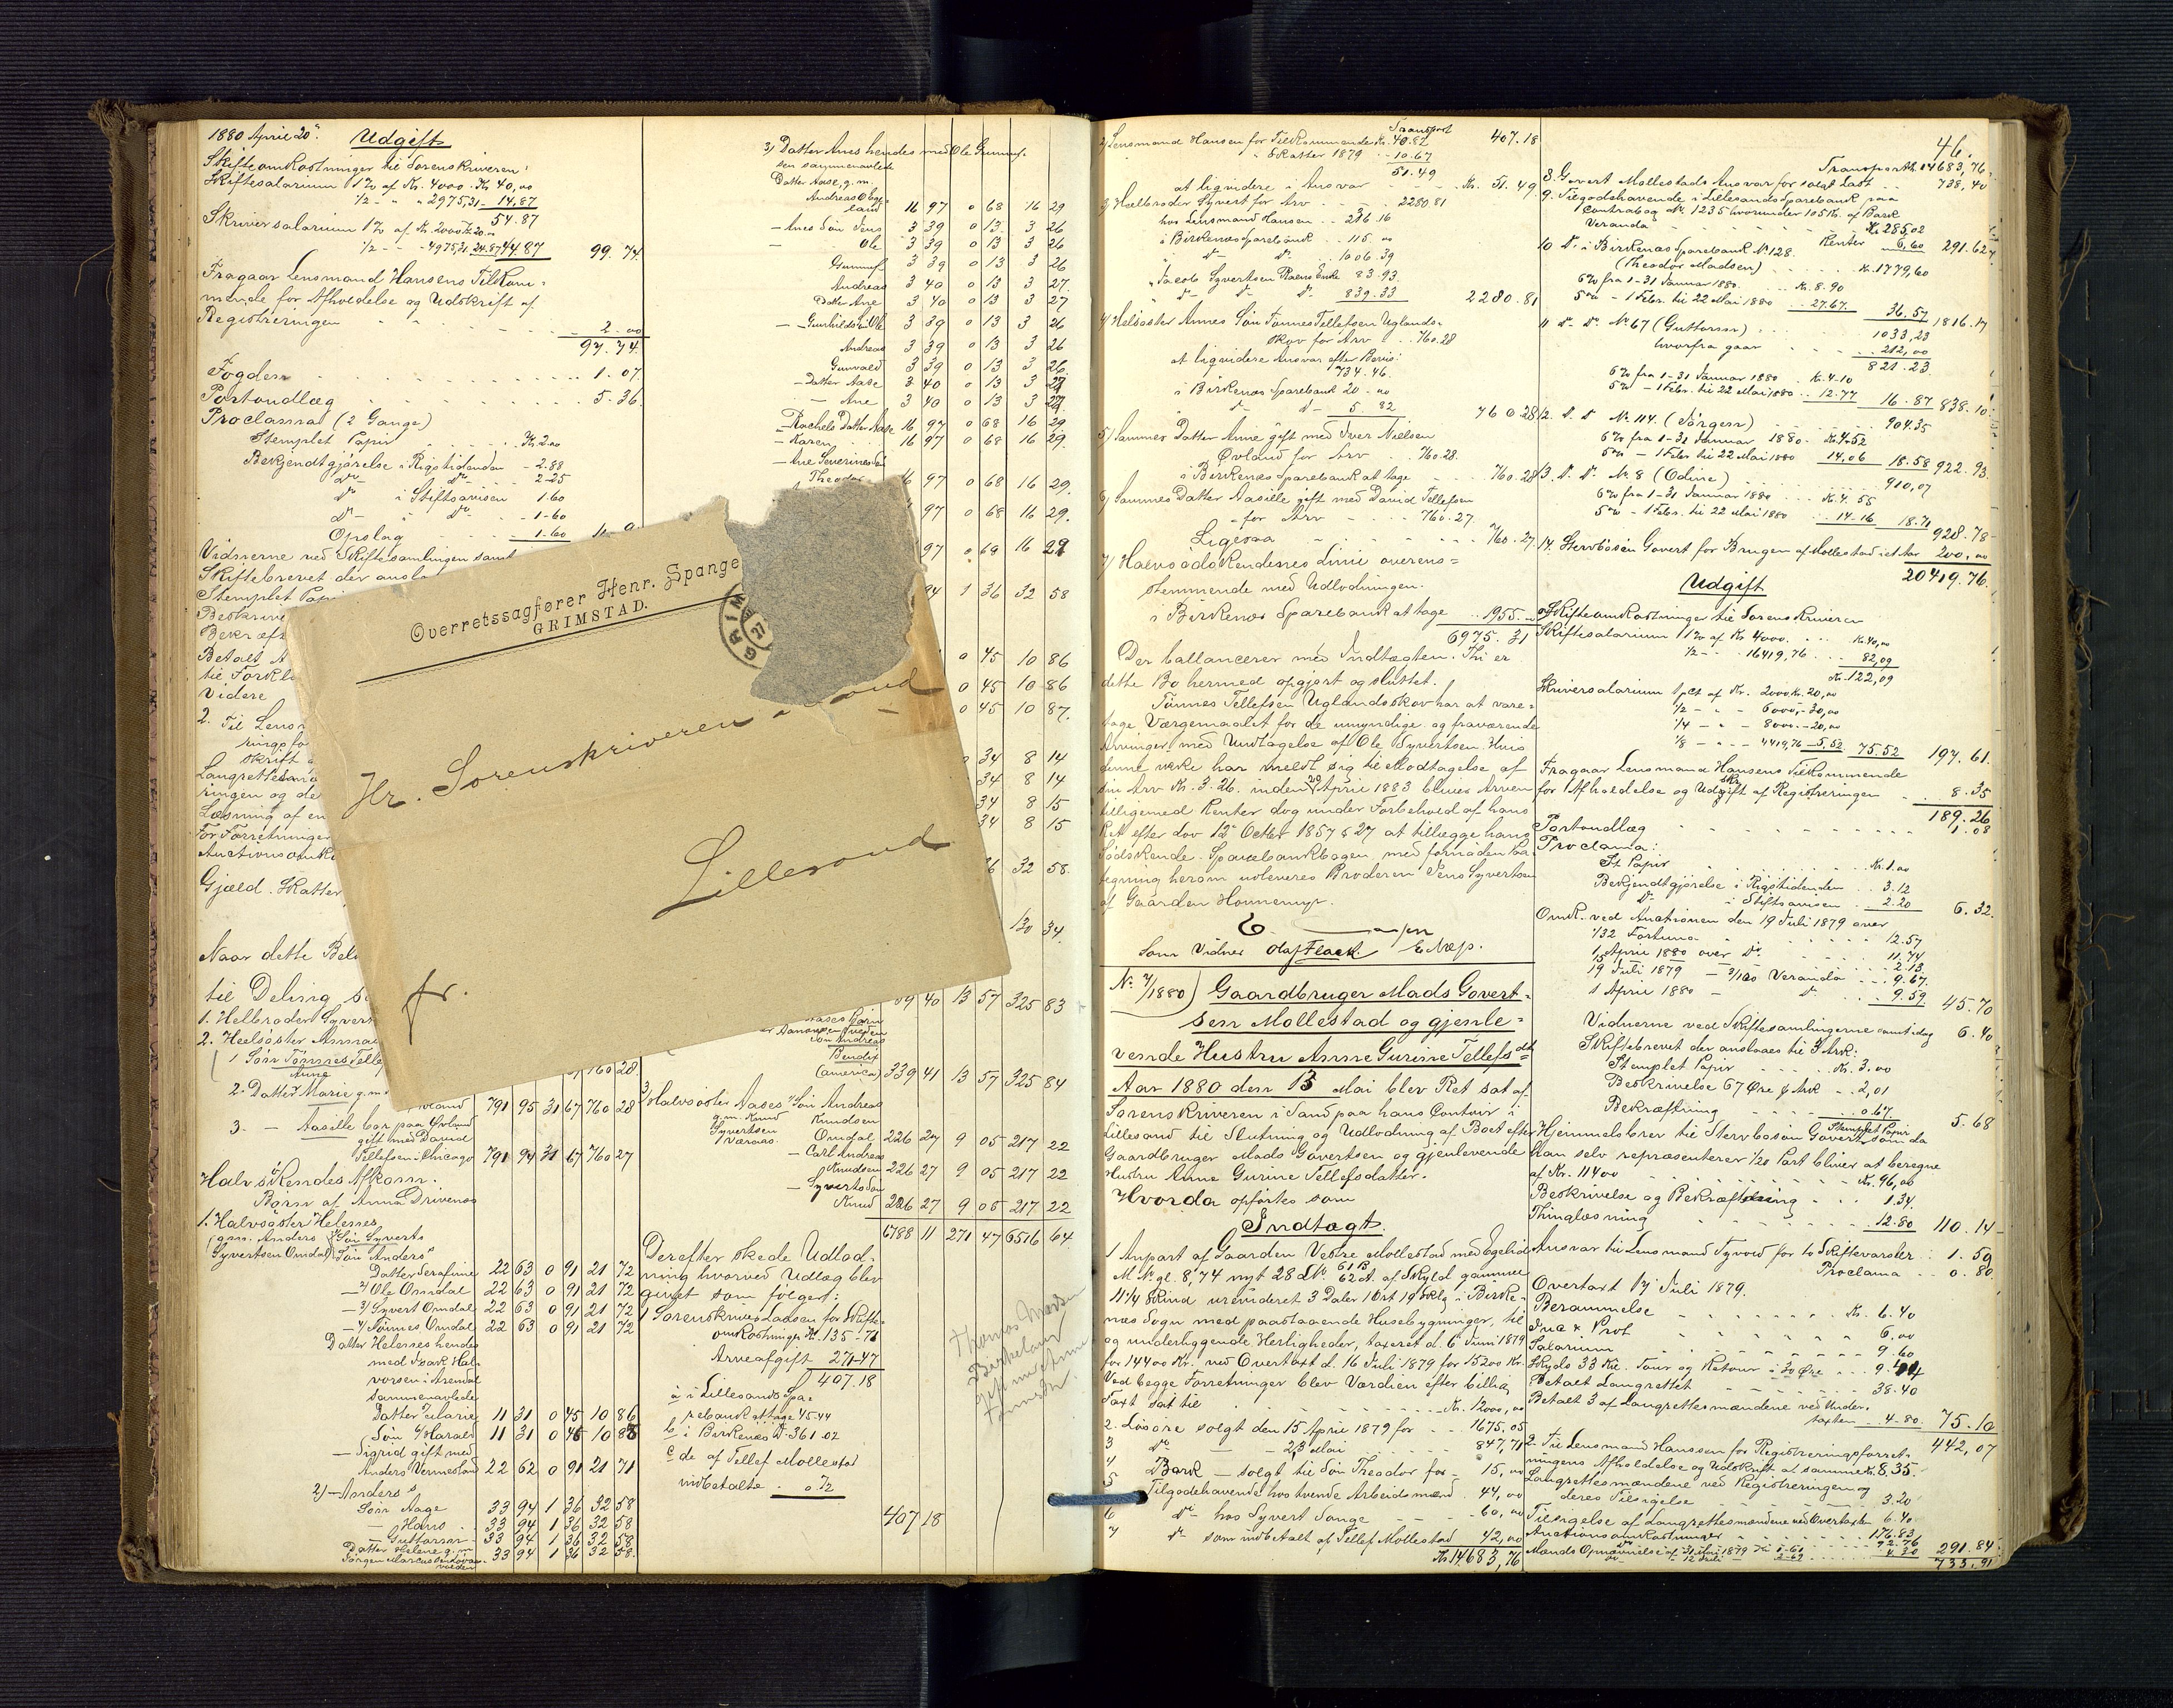 1880 April 20.
Udgift
Skifteomkostninger til Sorenskriveren:
Skiftesalarium 1% af Kr. 4000. Kr 40,00
1/2 - " 2975,31 - 14,87
54.87
Skriversalarium 1% af Kr. 2000 Kr 20.00
1/2 - - 4975,31 24.87 44.87 99.74
Fragaar Lensmand Hansens Tilkom-
mende for Afholdelse og Udskrift af
Registreringen 2.00
97.74
Fogden 1.07
Portoudlæg 5.36
Proclama (2 Gange)
Stemplet Papir Kr. 2.00
Bekjendtgjørelse i Rigstidenden - 2.88
do - do - 2-25
do i Stiftsavisen 1.60
do - " do - 1-60
Opslag - 1-60
Vidnerne ved Skiftesamlingen samt
Skiftebrevet der ansla
Stemplet Papi
Beskrive
Bekræft
Betalt
til Forkl
Videre
2. Til Lens
rings fo
skrift
Langrettesm
ringen og de
Læsning af en
For Forretninger
Auctionsomk
Gjæld. Skatter
Naar dette Bel
til Deling b
1. Helbroder Syvert
2. Heelsøster Anna
1 Søn Tønnes Telle
Anne
760 28
2. Datter Marie g.m.
Øvland 791 95 31 67 760 28
3. - Aasille bor paa Øvland
gift med David
Tellefsen i Chicago 791 94 31 67 760 27
Halvsøskendes Afkom.
Børn af Anna Drivenes
1. Halvsøster Helenes
g.m. Anders Søn Syverts
Syvertsen Omdal Søn Anders
Datter Serafine 22 63 0 91 21 72
2) Ole Omdal 22 63 0 91 21 72
3) Syvert Omdal 22 63 0 91 21 72
4) Tønnes Omdal 22 63 0 91 21 72
Datter Helenes hendes
med Isak Hal-
vorsen i Arendal
sammenavlede
Datter Jularie 11 31 0 45 10 86
Søn Harald 11 31 0 45 10 86
- Sigrid gift med
Anders Vermeland 22 62 0 91 21 71
2) - Anders s
Søn Aage 33 94 1 36 32 58
- Hans 33 94 1 36 32 58
- Guttorm 33 94 1 36 32 58
Datter Helene g.m.
Jørgen Marcus 33 94 1 36 32 58
3) Datter Anes hendes med Ole Gunnuf-
sen sammenavlede
Datter Aase, g.m.
Andreas Ogge-
land 16 97 0 68 16 29
- Anes Søn Jens 3 39 0 13 3 26
- Ole 3 39 0 13 3 26
Gunnuf 3 39 0 13 3 26
Andreas 3 40 0 13 3 27
Datter Ane 3 40 0 13 3 27
- Gunhilds Søn Ole 3 39 0 13 3 26
Andreas 3 39 0 13 3 26
Gunvald 3 39 0 13 3 26
- Datter Aase 3 40 0 13 3 27
- Ane 3 40 0 13 3 27
- Rachels Datter Aase 16 97 0 68 16 29
- Karen 16 97 0 68 16 29.
- Ane Severines Søn
Theodor 16 97 0 68 16 29.
97 0 68 16 29.
97 0 69 16 29
94 1 36 32 58
0 45 10 86
0 45 10 86
0 45 10 87.
34 8 14
34 8 14
34 8 15
34 8 15
32 58.
130 34.
40 13 57 325 83
Søn Andreas
Bendix
(america) 339 41 13 57 325 84
3/ Halvsøster Aases Søn Andreas
g.m. Knud Knudsen
Syvertsen Omdal 226 27 9 05 217 22
i Værnes - Carl Andreas
Knudsen 226 27 9 05 217 22
- Syverts Søn
Knud 226 27 9 05 217 22
6788 11 271 47 6516 64.
Derefter skede Udlod-
ning hvorved Udlæg blev
givet som følger:
1 Sorenskriver Ladsen for Skifte-
omkostninger Kr. 135-71
Arveafgift 271-47
407.18
a i Lillesands Spa-
rebank at tage 45.44
b i Birkenæs do 361 02
c de af Tellef Mollestad
indbetalte 0.72
407 18
Thomas
Birkeland
gift m
Overretssagfører Henr. Spange
GRIMSTAD.
GRIM
27
Hr. Sorenskriveren i
Lillesand
fr.
Transport 407.18
2/ Lensmand Hansen for Tilkommende Kr. 40.82
" Skatter 1879 10.67
51.49
at liqvidere i Ansvar Kr. 51.49
3/ Heelbroder Syvert for Arv 2280 81
hos Lensmand Hansen 236 16
i Birkenæs Sparebank 115.00
do do 1006.39
Jacob Syvertsen Rams Enke 83.93
do do do 839.33 2280.81
4/ Helsøster Annes Søn Tønnes Tellefsen Uglands-
skov for Arv 760.28
at liqvidere Ansvar efter Bevis:
734.46.
i Birkenæs Sparebank 20-00
do do 5.82 760 28
5/ Sammes Datter Anne gift med Iver Nielsen
Øvland for Arv 760.28.
i Birkenæs Sparebank at tage 760.28
6/ Sammes Datter Aasille gift med David Tellefsen
for Arv 760.27.
Ligesaa 760.27
7/ Halvsødskendenes Linie overens=
stemmende med Udlodningen.
i Birkenæs Sparebank at tage 1955.
6975.31
Der ballancerer med Indtægten. Thi er
dette Bo hermed opgjort og sluttet.
Tønnes Tellefsen Uglandsskov har at vare-
tage Værgemaalet for de umyndige og fraværende
Arvinger med Undtagelse af Ole Syvertsen. Hvis
denne ikke har meldt sig til Modtagelse af
sin Arv Kr. 3.26. inden 20 April 1883 bliver Arven
tilligemed Renter dog under Forbehold af hans
Ret efter Lov 12 Octbr 1857 § 27 at tillægge hans
Sødskende. Sparebankbogen med fornøden Paa-
tegning herom udleveres Broderen Jens Syvertsen
af Gaarden Honnemyr.
Som Vidner Olaf Flack. E Næp.
No. 7/1880) Gaardbruger Mads Govert-
sen Mollestad og gjenle=
vende Hustru Anne Gurine Tellefsdtr
Aar 1880 den 13 Mai blev Ret sat af
Sorenskriveren i Sand paa hans Contoir i
Lillesand til Slutning og Udlodning af Boet efter
Gaardbruger Mads Govertsen og gjenlevende
Hustru Anne Gurine Tellefsdatter.
Hvorda opførtes som
Indtægt.
1 Anpart af Gaarden Vestre Mollestad med Egelid
M. No. gl. 8, 74 nyt 28 L.No. 61B 62A. af Skyld gammel
11 1/4 Skind urevideret 3 Daler 1 Ort 19 Skilg i Birke-
næs Sogn med paastaaende Husebygninger, til
og underliggende Herligheder, taxeret d. 6 Juni 1879
for 14400 Kr. ved Overtaxt d. 16 Juli 1879 for 15200 Kr.
Ved begge Forretninger blev Værdien efter billig
Taxt sat til Kr. 12000,00
2. Løsøre solgt den 15 April 1879 for 1675,05
3 do - - 23 Mai 847,71
4 Bark - solgt til Søn Theodor for - 15,00
5 Tilgodehavende hos tvende Arbeidsmænd 44,00
6 do hos Syvert Tange 60,00
7 do som indbetalt af Tellef Mollestad 42,00
Kr. 14683,76
46.
Transport Kr. 14683,76.
8. Govert Mollestads Ansvar for solgt Last 738,40
9. Tilgodehavende i Lillesands Sparebank paa
Contrabog No. 1235 hvorunder 105 Kr. af Bark
Veranda Kr. 285,02
Renter 6,60 291.62
10 do i Birkenæs Sparebank No. 128.
(Theodor Madsen) Kr. 1779,60
6% fra 1-31 Januar 1880 Kr. 8.90
5% - 1 Febr. til 22 Mai 1880 27.67. 36,57 1816.17
11 do do No. 67 (Guttorm) 1033,23
hvorfra gaar 212,00
821.23
6% fra 1-31 Januar 1880 Kr. 4-10
5% - 1 Febr. til 22 Mai 1880 12.77 16.87 838.10
12. do do No. 114. (Jørgen) 904.35
6% fra 1-31 Januar 1880. Kr. 4.52
5% - 1 Febr. til 22 Mai 1880 14,06 18.58 922.93
13. do do No. 8 (Odine) 910,07
6% fra 1-31 Januar 1880 Kr. 4.55
5% - 1 Febr. til 22 Mai 1880 14-16 18.71 928.78
14. Stervbosøn Govert for Brugen af Mollestad i et Aar 200,00
20419.76.
Udgift
a Skifteomkostninger til Sorenskriveren
Skiftesalarium 1% af Kr 4000. Kr. 40,00
1/2 - - 16419,76 82,09
Kr. 122,09
Skriversalarium 1 pCt af Kr. 2000 Kr. 20,00
1/2 - - 6000,- 30,00
1/4 - - 8000.- 20,00
1/8 - - 4419,76 - 5,52 75.52 197.61.
Fragaar Lensmand Hansens Tilkommende
for Afholdelse og Udskrift af Registreringen 8.35
189.26
Portoudlæg 1.08
Proclama:
St. Papir Kr. 1.00
Bekjendtgjørelse i Rigstidenden 3.12
do i Stiftsavisen 2.20 6.32.
Omk. ved Auctionen den 19 Juli 1879 over
1/32 Fortuna 12.57
1 April 1880 over do 11.74
19 Juli 1879 - 3/100 Veranda 2.13 9.67.
1 April 1880 - do 9.59 45.70
Vidnerne ved Skiftesamlingerne samt idag 6.40
Skiftebrevet der anslaaes til 3 Ark:
Stemplet Papir Kr. 3.00
Beskrivelse 67 Øre pr Ark - 2,01
Bekræftning 0.67 5.68
Hjemmelsbrev til Stervbosøn Govert, Stemplet Papir som da
han selv repræsenterer 1/20 Part bliver at beregne
af Kr. 11400 Kr. 96,00
Beskrivelse og Bekræftning 1.34.
Thinglæsning 12.80 110.14
Ansvar til Lensmand Tyvold for 10 Skiftevarsler 1.59
Proclama 0.80
Overtaxt 17 Juli 1879.
Berammelse Kr. 6.40
Inc & Prot 6,00
Salarium 9.60
Skyds 33 Kil. Tour og Retour i 30 Øre
Betalt Langrettet 38.40
Betalt 3 af Langrettesmændene ved Under-
taxten 4-80. 75.10
442,07
2. Til Lensmand Hanssen for Registreringsforret-
ningens Afholdelse og Udskrift af samme Kr. 8,35.
Langrettesmændene ved Registreringen og
deres Tilsigelse 3.20
Tilsigelse af Langrettesmændene ved Overtaxten 6.40
Auctionsomkostninger 176.83
do 92.76
Mænds Opnævnelse af 31 Mai 1879 Kr. 1-61
do - 12 Juli 2-69 4.30 291.84
733.91